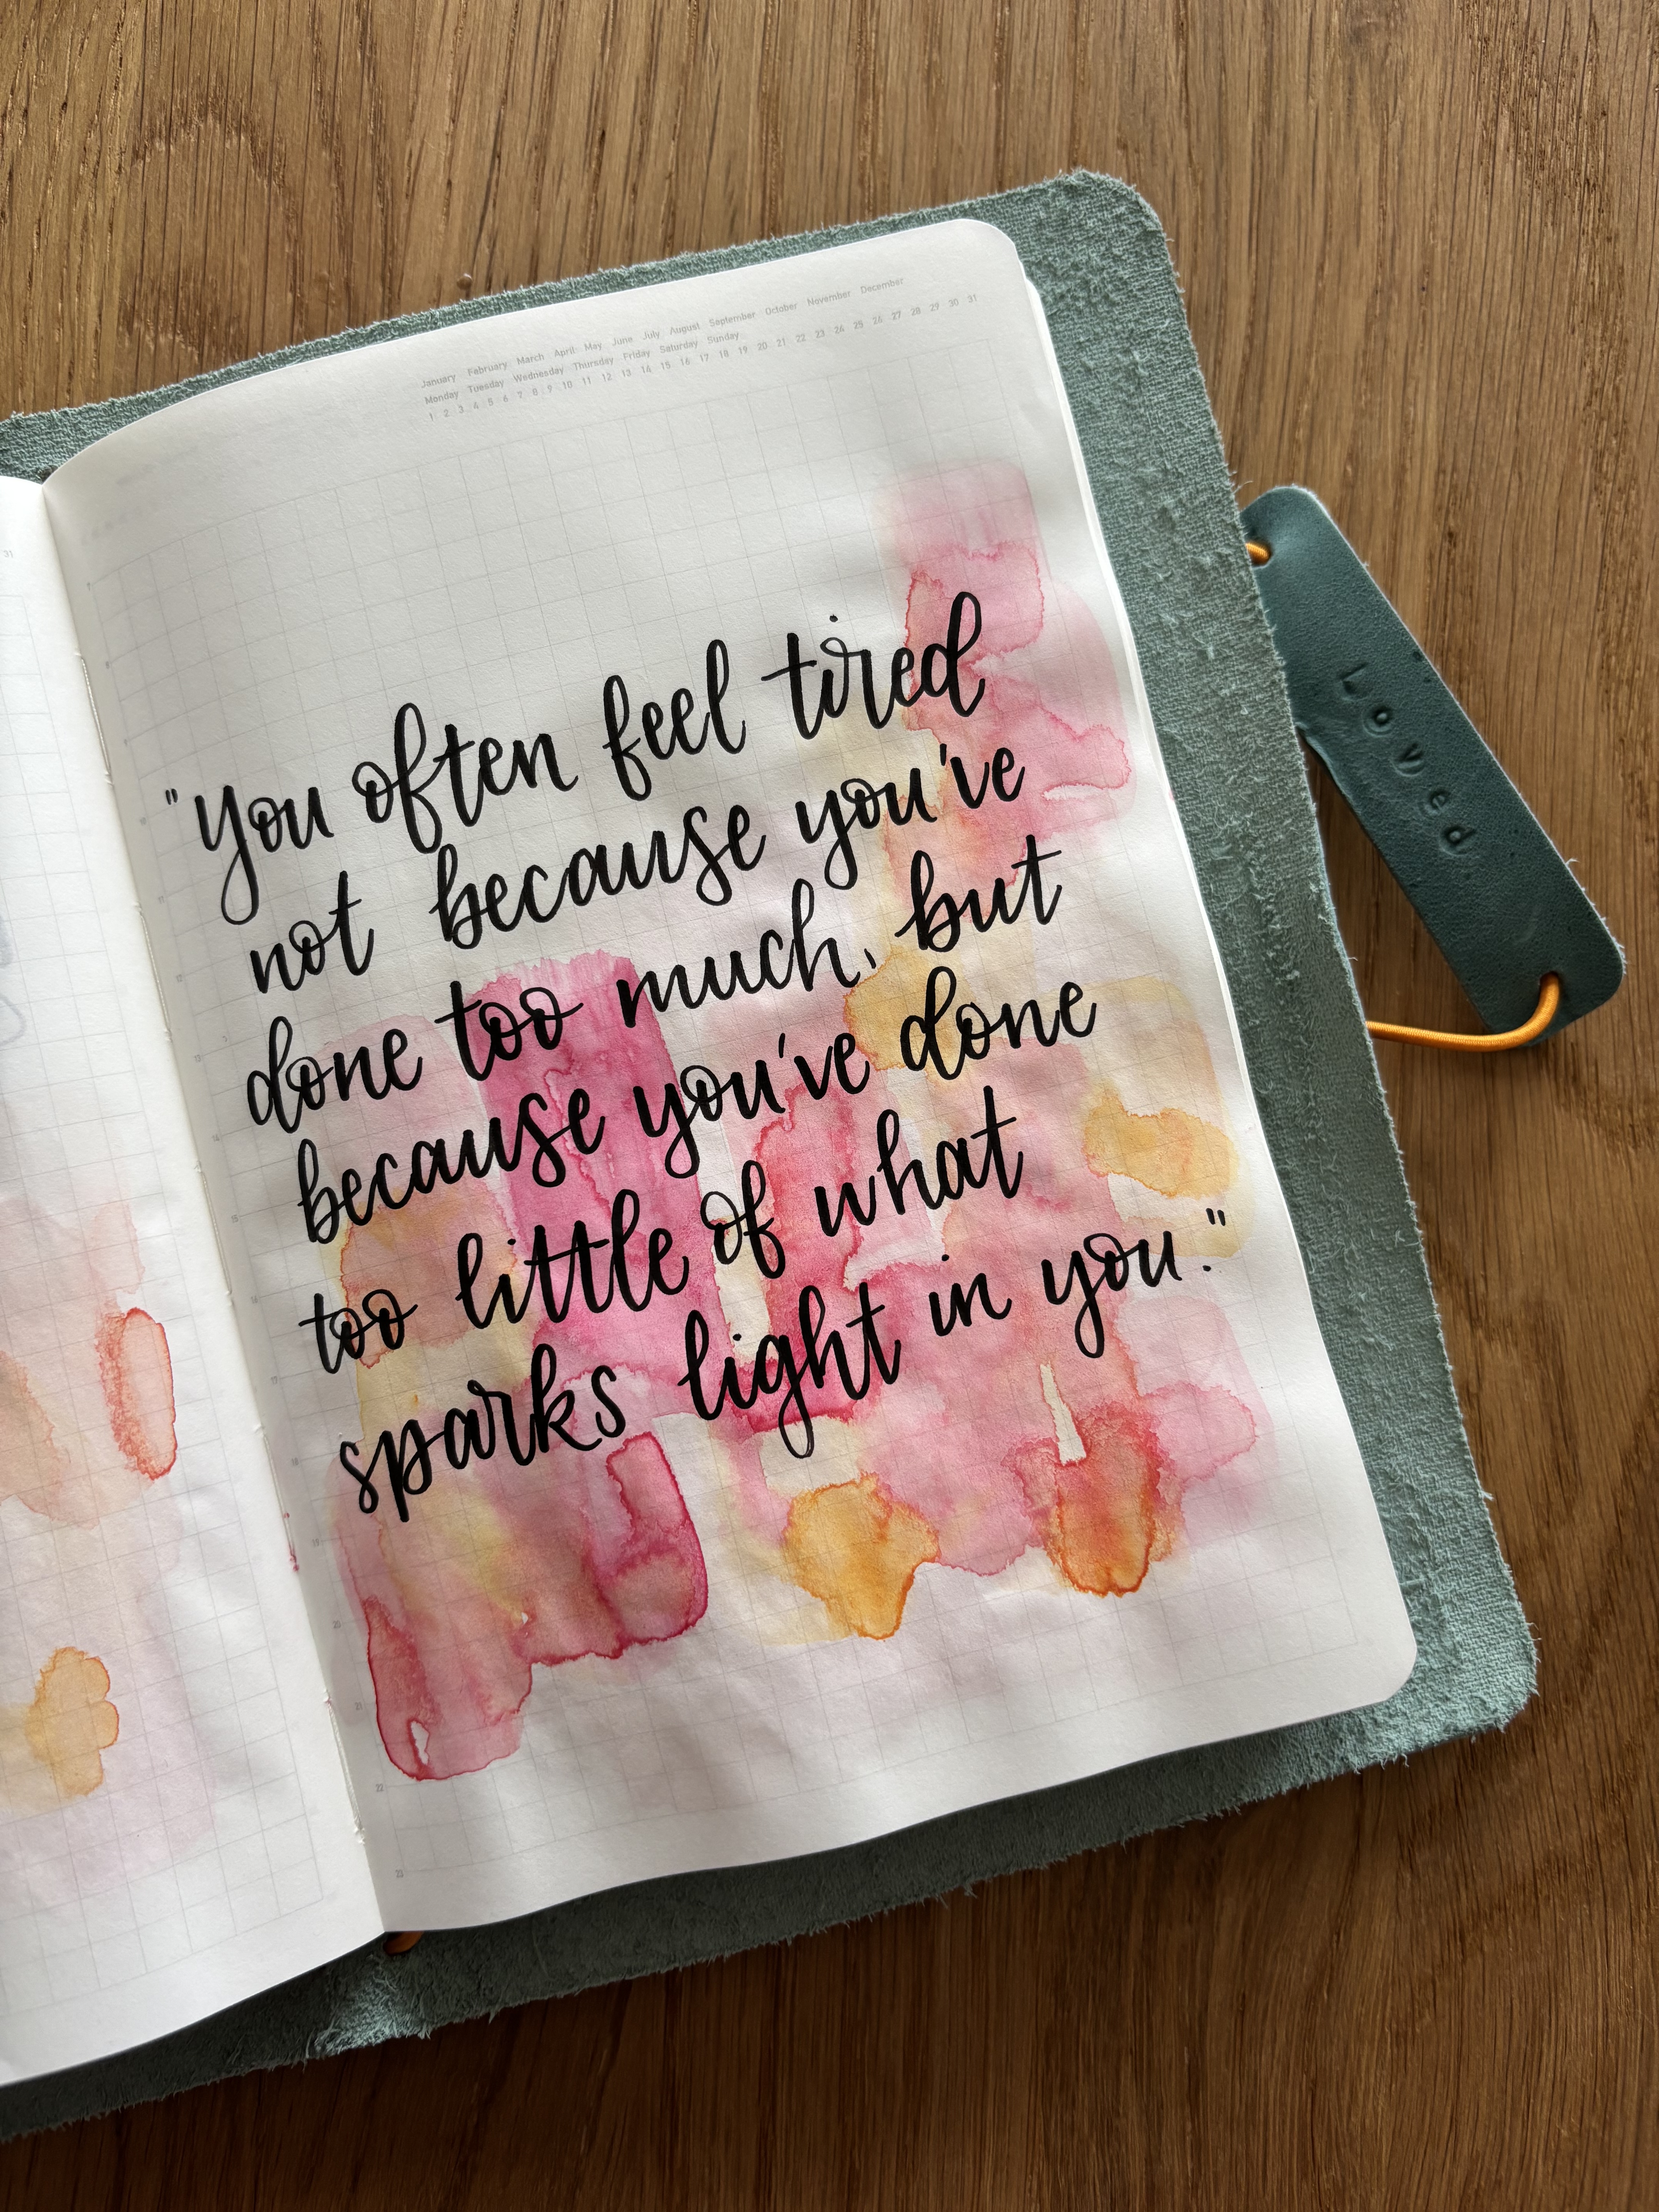 January February March April May June July August September October November December
Monday Tuesday Wednesday Thursday Friday Saturday Sunday
1 2 3 4 5 6 7 8 9 10 11 12 13 14 15 16 17 18 19 20 21 22 23 24 25 26 27 28 29 30 31
"You often feel tired
not because you've
done too much, but
because you've done
too little of what
sparks light in you."
Loved
31
20
21
22
23